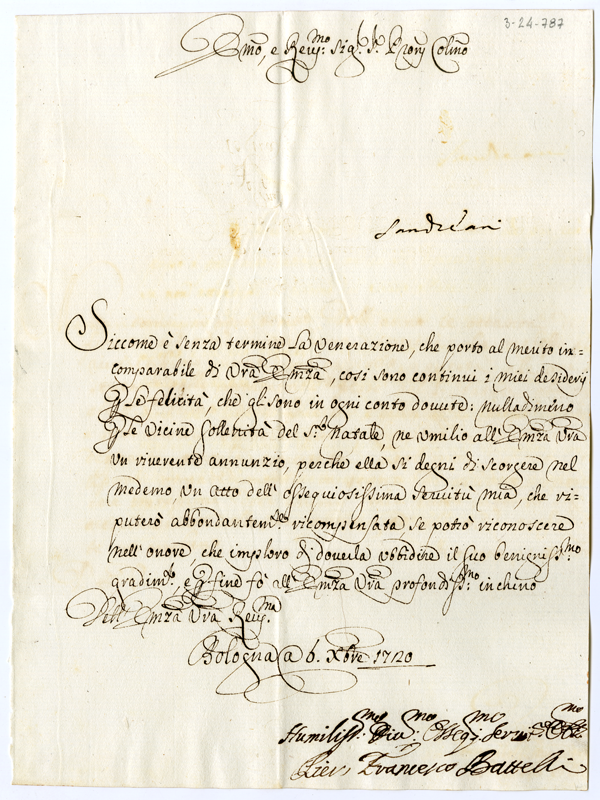 3-24-787
Emo, e Revmo. Sigr. Sr. Pron Colmo
Siccome è senza termine la venerazione, che porto al merito in=
comparabile di Vra Emza, così sono continui i miei desiderij
p le felicità, che gli sono in ogni conto dovute: nulladimino
p le vicine sollennità del S.o Natale, ne umilio all' Emza Vra
un riverente annunzio, perche ella si degni di scorgere nel
medemo, un atto dell' ossequiosissima servitù mia, che ri=
puterò abbondantem.te ricompensata, se potrò riconoscere
nell' onore, che imploro di doverla ubbidire il suo benigniss.mo
gradim.to, e p fine fò all' Emza Vra profondiss.mo inchino
Dell' Emza Vra Revma.
Bologna a 6. Xbre 1720
Humiliss.mo Div.mo Osseq.mo Serv.
Pier Francesco Battelli